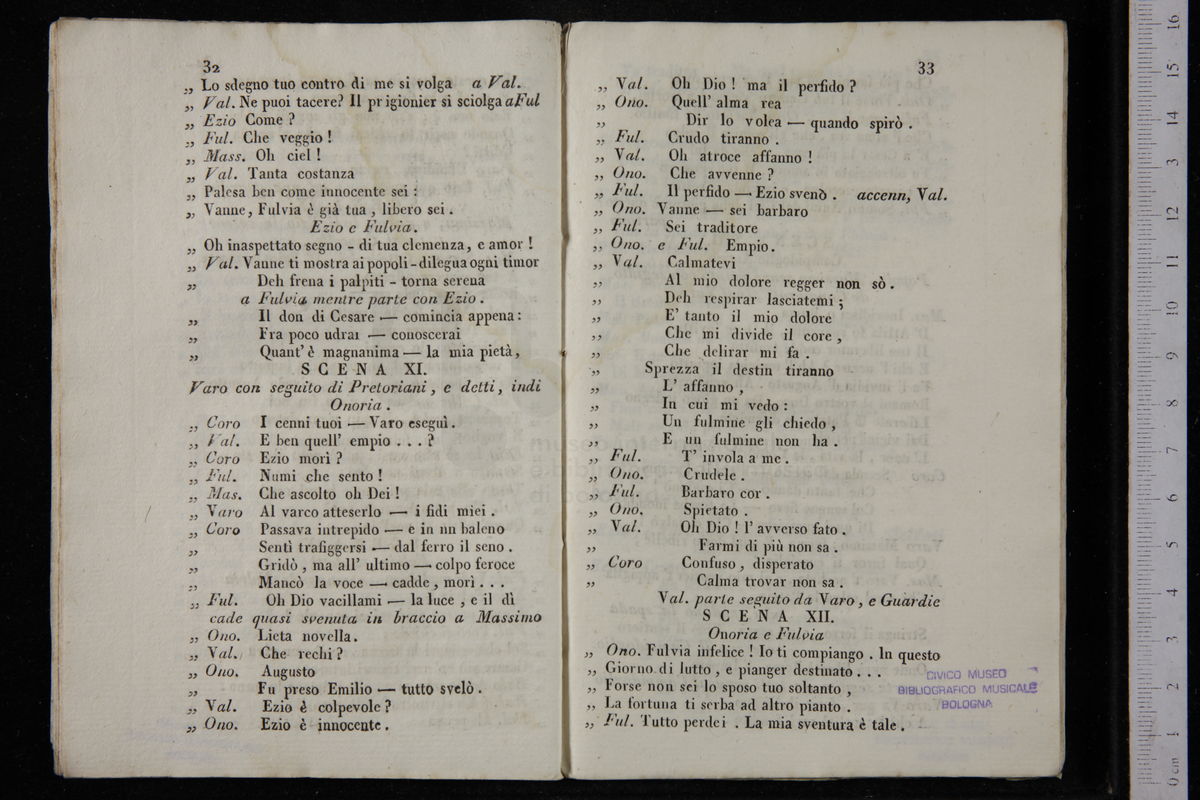 32
„ Lo sdegno tuo contro di me si volga a Val.
„ Val. Ne puoi tacere? Il prigionier si sciolga aFul
„ Ezio Come ?
„ Ful. Che veggio !
„ Mass. Oh ciel !
„ Val. Tanta costanza
„ Palesa ben come innocente sei :
„ Vanne, Fulvia è già tua , libero sei .
Ezio e Fulvia .
„ Oh inaspettato segno - di tua clemenza, e amor !
„ Val. Vanne ti mostra ai popoli - dilegua ogni timor
„ Deh frena i palpiti - torna serena
a Fulvia mentre parte con Ezio .
„ Il don di Cesare — comincia appena :
„ Fra poco udrai — conoscerai
„ Quant' è magnanima — la mia pietà ,
SCENA XI.
Varo con seguito di Pretoriani , e detti, indi
Onoria .
„ Coro I cenni tuoi — Varo eseguì .
„ Val. E ben quell' empio . . . ?
„ Coro Ezio morì ?
„ Ful. Numi che sento !
„ Mas. Che ascolto oh Dei !
„ Varo Al varco atteserlo — i fidi miei .
„ Coro Passava intrepido — e in un baleno
„ Sentì trafiggersi — dal ferro il seno .
„ Gridò , ma all' ultimo — colpo feroce
„ Mancò la voce — cadde , morì . . .
„ Ful. Oh Dio vacillami — la luce , e il dì
cade quasi svenuta in braccio a Massimo
„ Ono. Lieta novella .
„ Val. Che rechi ?
„ Ono. Augusto
„ Fu preso Emilio — tutto svelò .
„ Val. Ezio è colpevole ?
„ Ono. Ezio è innocente .
33
„ Val. Oh Dio ! ma il perfido ?
„ Ono. Quell' alma rea
„ Dir lo volea — quando spirò .
„ Ful. Crudo tiranno .
„ Val. Oh atroce affanno !
„ Ono. Che avvenne ?
„ Ful. Il perfido — Ezio svenò . accenn, Val.
„ Ono. Vanne — sei barbaro
„ Ful. Sei traditore
„ Ono. e Ful. Empio .
„ Val. Calmatevi
„ Al mio dolore regger non sò .
„ Deh respirar lasciatemi ;
„ E' tanto il mio dolore
„ Che mi divide il core ,
„ Che delirar mi fa .
„ Sprezza il destin tiranno
„ L' affanno ,
„ In cui mi vedo :
„ Un fulmine gli chiedo ,
„ E un fulmine non ha .
„ Ful. T' invola a me .
„ Ono. Crudele .
„ Ful. Barbaro cor .
„ Ono. Spietato .
„ Val. Oh Dio ! l' avverso fato .
„ Farmi di più non sa .
„ Coro Confuso , disperato
„ Calma trovar non sa .
Val. parte seguito da Varo , e Guardie
SCENA XII.
Onoria e Fulvia
„ Ono. Fulvia infelice ! Io ti compiango . In questo
„ Giorno di lutto , e pianger destinato . . .
„ Forse non sei lo sposo tuo soltanto ,
„ La fortuna ti serba ad altro pianto .
„ Ful. Tutto perdei . La mia sventura è tale .
CIVICO MUSEO
BIBLIOGRAFICO MUSICALE
BOLOGNA
0 cm 1 2 3 4 5 6 7 8 9 10 11 12 13 14 15 16